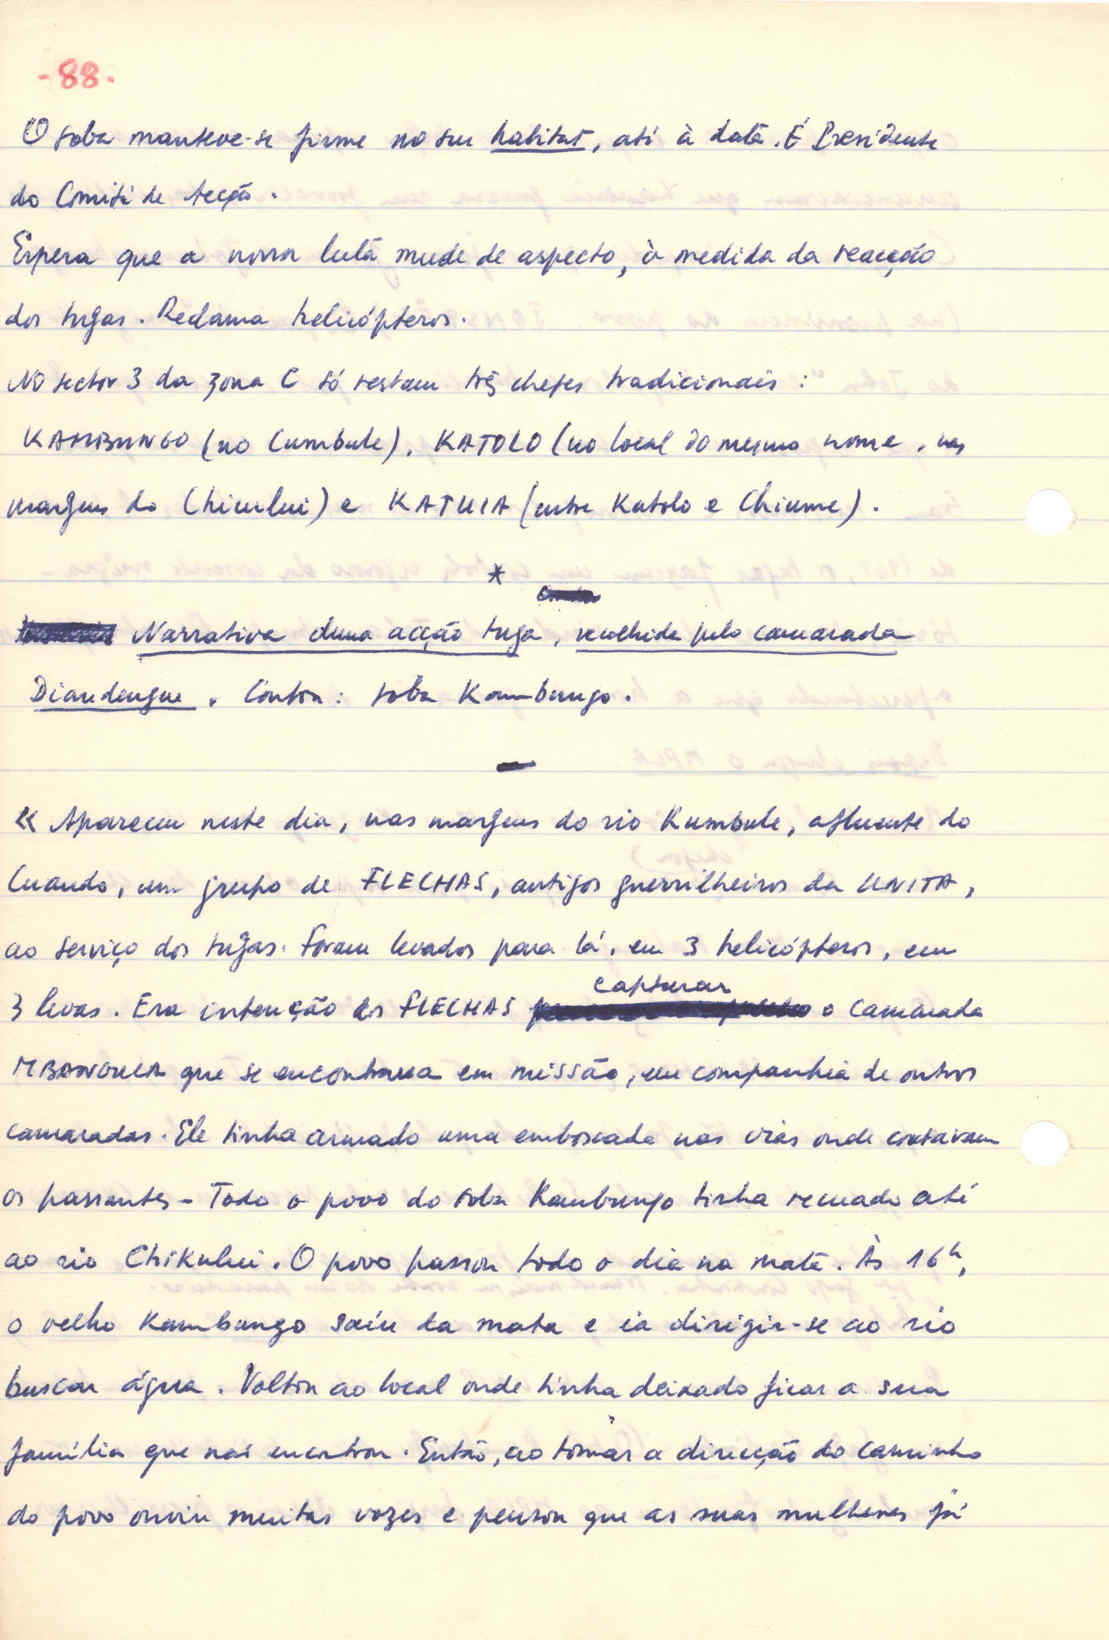 -88-
O soba manteve-se firme no seu habitat, até à data. É Presidente
do Comité de Acção.
Espera que a nossa luta mude de aspecto, à medida da reacção
dos tugas. Reclama helicópteros.
No sector 3 da zona C só restam três chefes tradicionais:
KAMBUNGO (no Cumbule), KATOLO (no local do mesmo nome, nas
margens do Chicului) e KATUIA (entre Katolo e Chiume).
*
Narrativa duma acção tuga, recolhida pelo camarada
Diandengue. Conton: soba Kambungo.
—
« Apareceu neste dia, nas margens do rio Kumbule, afluente do
Cuando, um grupo de FLECHAS, antigos guerrilheiros da UNITA,
ao serviço dos tugas. Foram levados para lá, em 3 helicópteros, em
3 levas. Era intenção dos FLECHAS capturar o camarada
MBANGULA que se encontrava em missão, em companhia de outros
camaradas. Ele tinha armado uma emboscada nas vias onde contavam
os passantes - Todo o povo do soba Kambungo tinha recuado até
ao rio Chikului. O povo passou todo o dia na mata. Às 16h,
o velho Kambungo saíu da mata e ia dirigir-se ao rio
buscar água. Voltou ao local onde tinha deixado ficar a sua
família que não encontrou. Então, ao tomar a direcção do caminho
do povo ouviu muitas vozes e pensou que as suas mulheres já